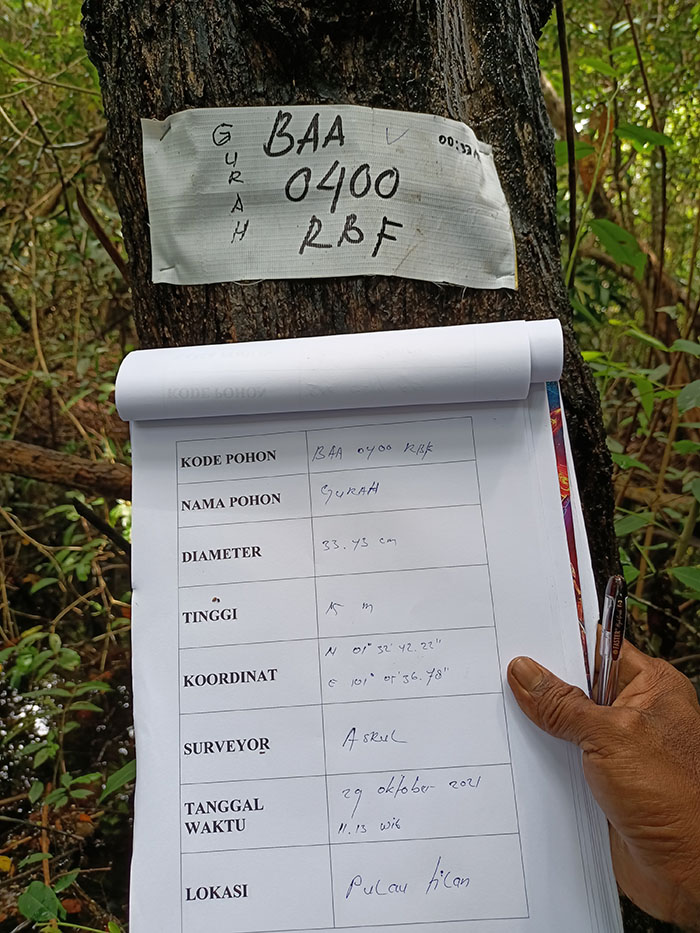 GURAH
BAA
00:33A
0400
RBF
KODE POHON BAA 0400 RBF
NAMA POHON GURAH
DIAMETER 33.43 cm
TINGGI 15 m
KOORDINAT N 01° 32' 42.22"
E 101° 05' 36.78"
SURVEYOR Askul
TANGGAL 29 oktober 2021
WAKTU 11.13 wib
LOKASI Pulau tilan